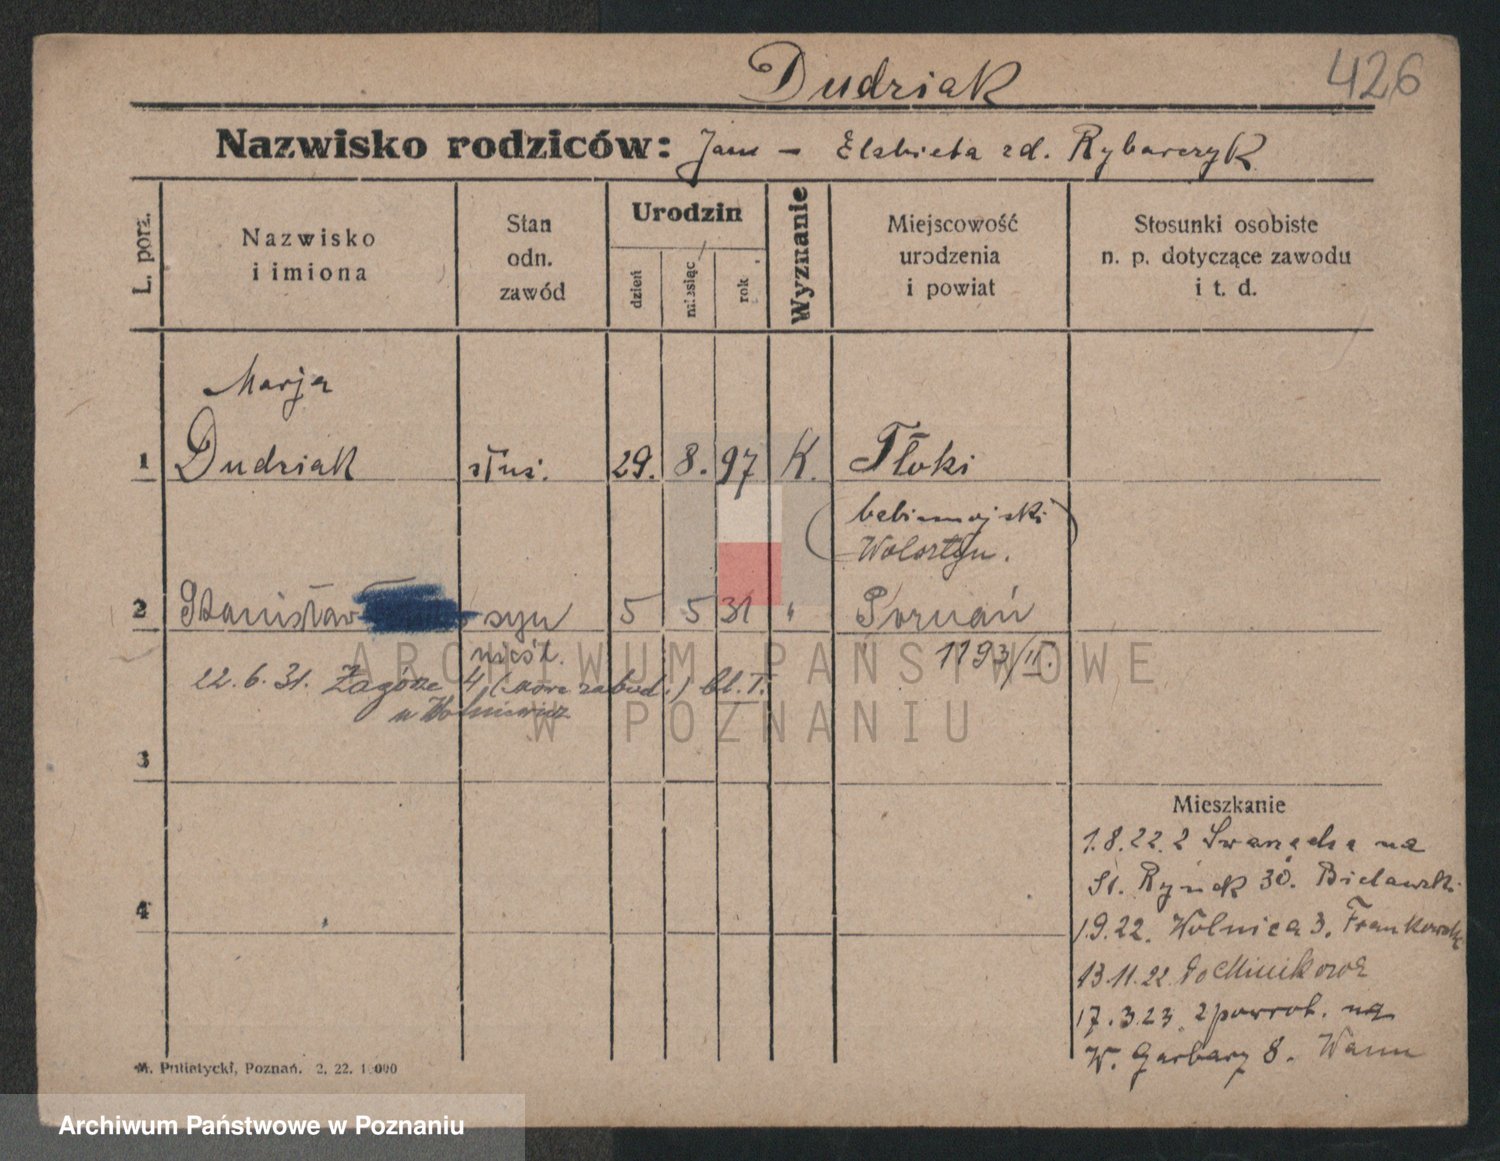 Dudziak
426
Nazwisko rodziców: Jan – Elżbieta zd. Rybarczyk
L. porz.
Nazwisko
i imiona
Stan
odn.
zawód
Urodzin
dzień
miesiąc
rok
Wyznanie
Miejscowość
urodzenia
i powiat
Stosunki osobiste
n. p. dotyczące zawodu
i t. d.
Marja
1 Dudziak służ. 29. 8. 97 K. Tłoki
babimojski
Wolsztyn.
2 Stanisław syn 5 5 31 " Poznań
nieśl. 1193/II.
22.6.31. Zagórze 4
3
4
Mieszkanie
1.8.22. z na
St. Rynek 30. Bielawski
1.9.22. Wolnica 3.
13.11.22. do
17.3.23. z powrot. na
W. Garbary 8.
M. Putiatycki, Poznań. 2. 22. 1000
ARCHIWUM PAŃSTWOWE
W POZNANIU
Archiwum Państwowe w Poznaniu